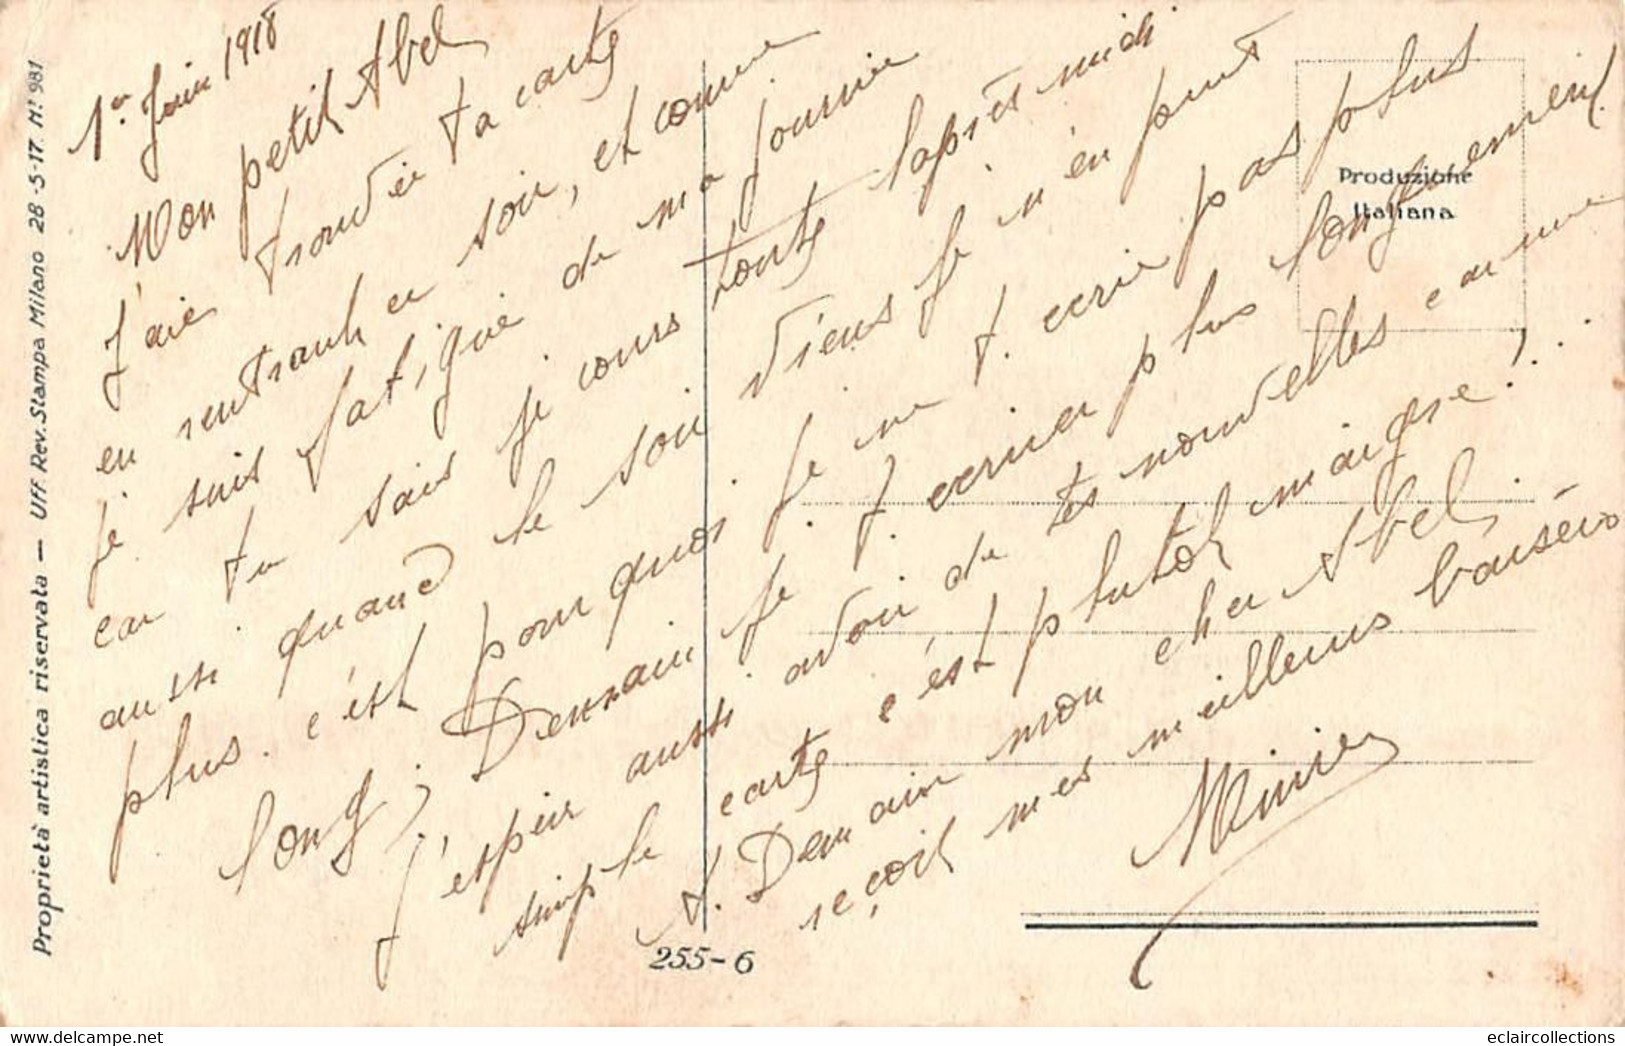 1er Juin 1918
Mon petit Abel
J'aie trouvée ta carte
en rentrant ce soir, et comme
je suis fatiguée de ma journée
car tu sais je cours toute laprès midi
aussi quand le soir viens je n'en peut
plus. c'est pourquoi je ne t. ecrie pas plus
long; Demain je t. ecrirer plus longuement.
J'espère aussi avoir de tes nouvelles car une
simple carte c'est plutot maigre!..
A. Demain mon cher Abel.
reçoit mes meilleurs baisers
Proprietà artistica riservata — Uff. Rev. Stampa Milano 28-5-17. N° 981
Produzione
Italiana
255-6
eclaircollections
www.delcampe.net